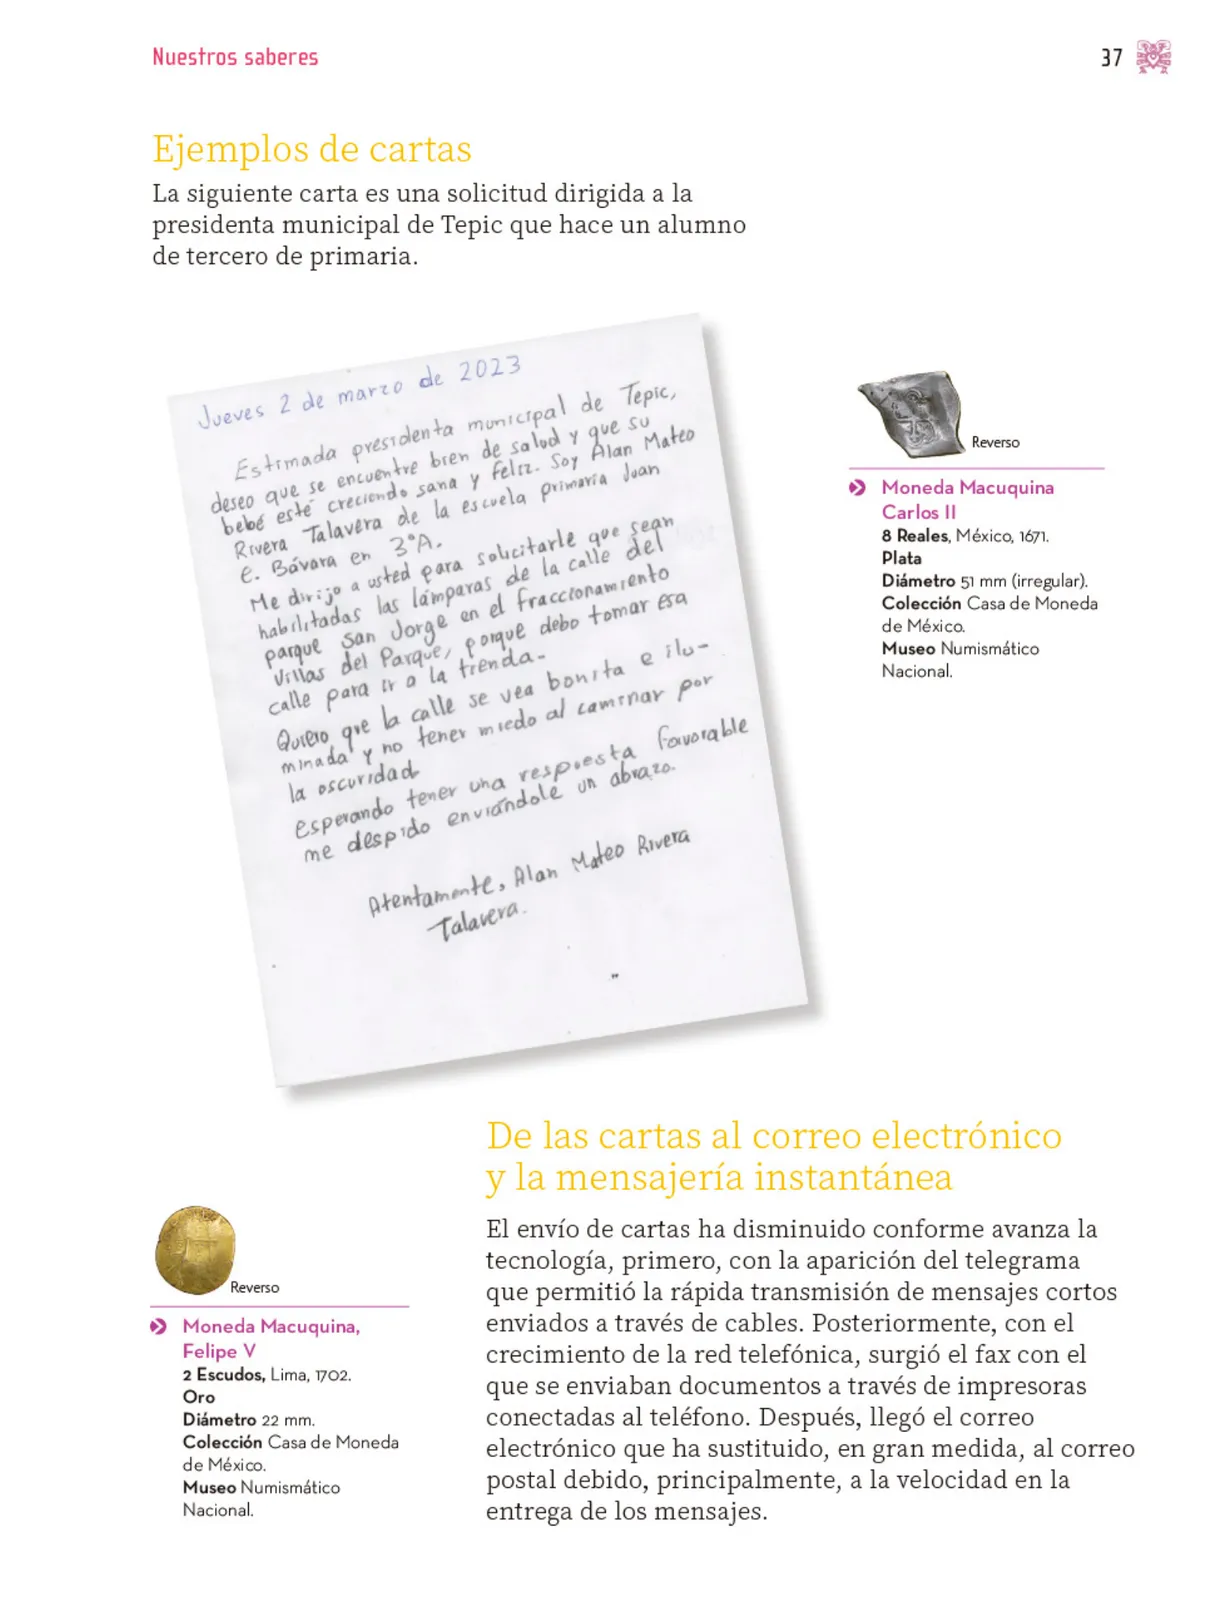 Nuestros saberes
37
Ejemplos de cartas
La siguiente carta es una solicitud dirigida a la
presidenta municipal de Tepic que hace un alumno
de tercero de primaria.
Jueves 2 de marzo de 2023
Estimada presidenta municipal de Tepic,
deseo que se encuentre bien de salud y que su
bebé esté creciendo sana y feliz. Soy Alan Mateo
Rivera Talavera de la escuela primaria Juan
E. Bávara en 3°A.
Me dirijo a usted para solicitarle que sean
habilitadas las lámparas de la calle del
parque San Jorge en el fraccionamiento
Villas del Parque, porque debo tomar esa
calle para ir a la tienda.
Quiero que la calle se vea bonita e ilu-
minada y no tener miedo al caminar por
la oscuridad
Esperando tener una respuesta favorable
me despido enviándole un abrazo.
Atentamente, Alan Mateo Rivera
Talavera.
Reverso
Moneda Macuquina
Carlos II
8 Reales, México, 1671.
Plata
Diámetro 51 mm (irregular).
Colección Casa de Moneda
de México.
Museo Numismático
Nacional.
De las cartas al correo electrónico
y la mensajería instantánea
El envío de cartas ha disminuido conforme avanza la
tecnología, primero, con la aparición del telegrama
que permitió la rápida transmisión de mensajes cortos
enviados a través de cables. Posteriormente, con el
crecimiento de la red telefónica, surgió el fax con el
que se enviaban documentos a través de impresoras
conectadas al teléfono. Después, llegó el correo
electrónico que ha sustituido, en gran medida, al correo
postal debido, principalmente, a la velocidad en la
entrega de los mensajes.
Reverso
Moneda Macuquina,
Felipe V
2 Escudos, Lima, 1702.
Oro
Diámetro 22 mm.
Colección Casa de Moneda
de México.
Museo Numismático
Nacional.